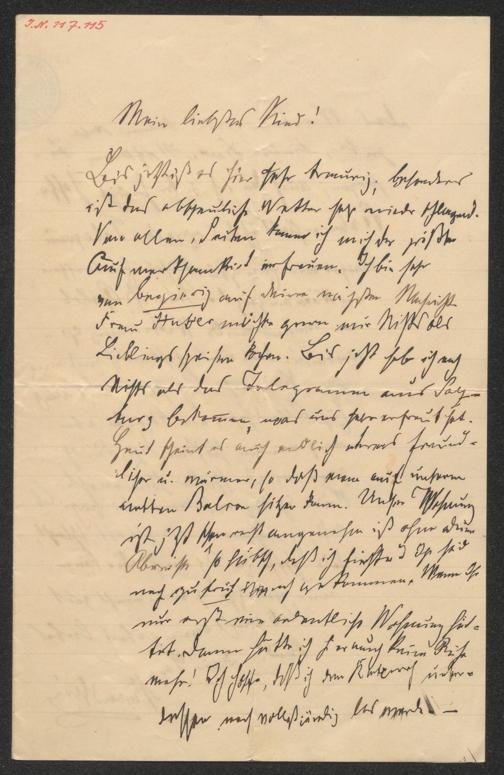 J.N. 117.115
Mein liebstes Kind!
Bis jetzt ist es hier sehr traurig, besonders
ist das abscheuliche Wetter sehr niederschlagend.
Von allen Seiten kann ich mich der größten
Aufmerksamkeit erfreuen. Ich bin sehr
neu begierig auf deine nächste Nachricht
Frau möchte gern mir nichts als
Lieblingsspeisen kochen. Bis jetzt habe ich noch
nichts als das Telegramm aus Salz-
burg bekommen, was uns sehr erfreut hat.
Heut scheint es auch endlich etwas freund-
licher u. wärmer, so daß man auf unserem
netten Balcon sitzen kann. Unsre Wohnung
ist jetzt schon recht angenehm ist ohne
so hübsch, daß ich finde Ihr seid
noch zu früh gekommen. Wenn Ihr
nur erst eine ordentliche Wohnung hät-
tet. Dann hätte ich ja auch keine Ruhe
mehr! Ich hoffe, daß ich den Katarrh unter-
dessen noch vollständig los werde. —